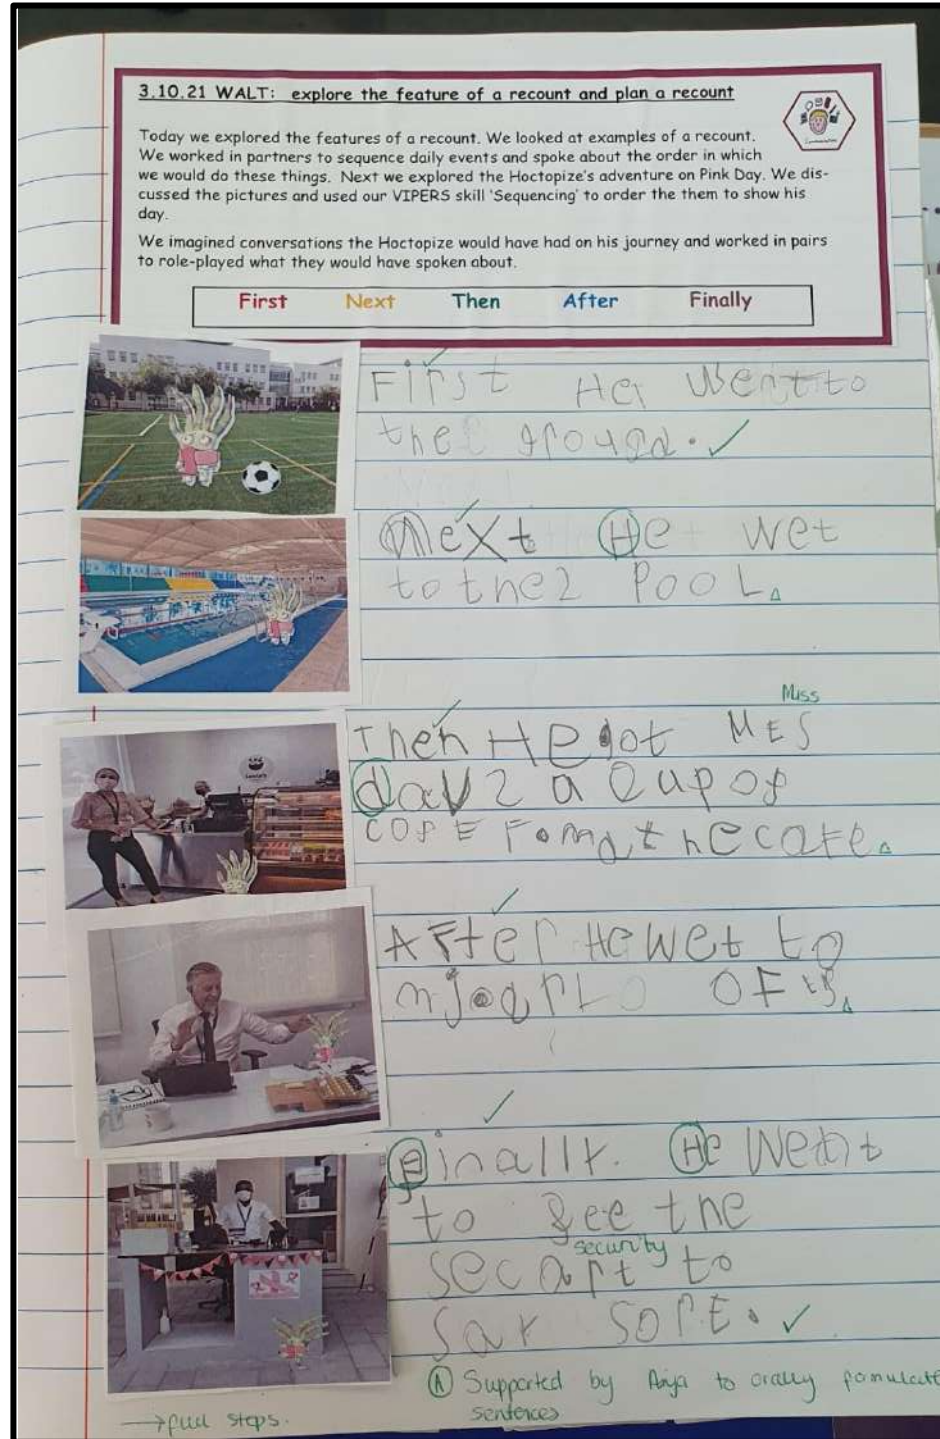 3.10.21 WALT: explore the feature of a recount and plan a recount
Today we explored the features of a recount. We looked at examples of a recount.
We worked in partners to sequence daily events and spoke about the order in which
we would do these things. Next we explored the Hoctopize's adventure on Pink Day. We dis-
cussed the pictures and used our VIPERS skill 'Sequencing' to order the them to show his
day.
We imagined conversations the Hoctopize would have had on his journey and worked in pairs
to role-played what they would have spoken about.
First Next Then After Finally
First He went to
the
Next He wet
to the POOL
Miss
Then He got MES
a cup of
the cafe
After He wet to
Finally. He went
to see the
security
to
SORE.
Supported by to orally
sentences
→ full stops.